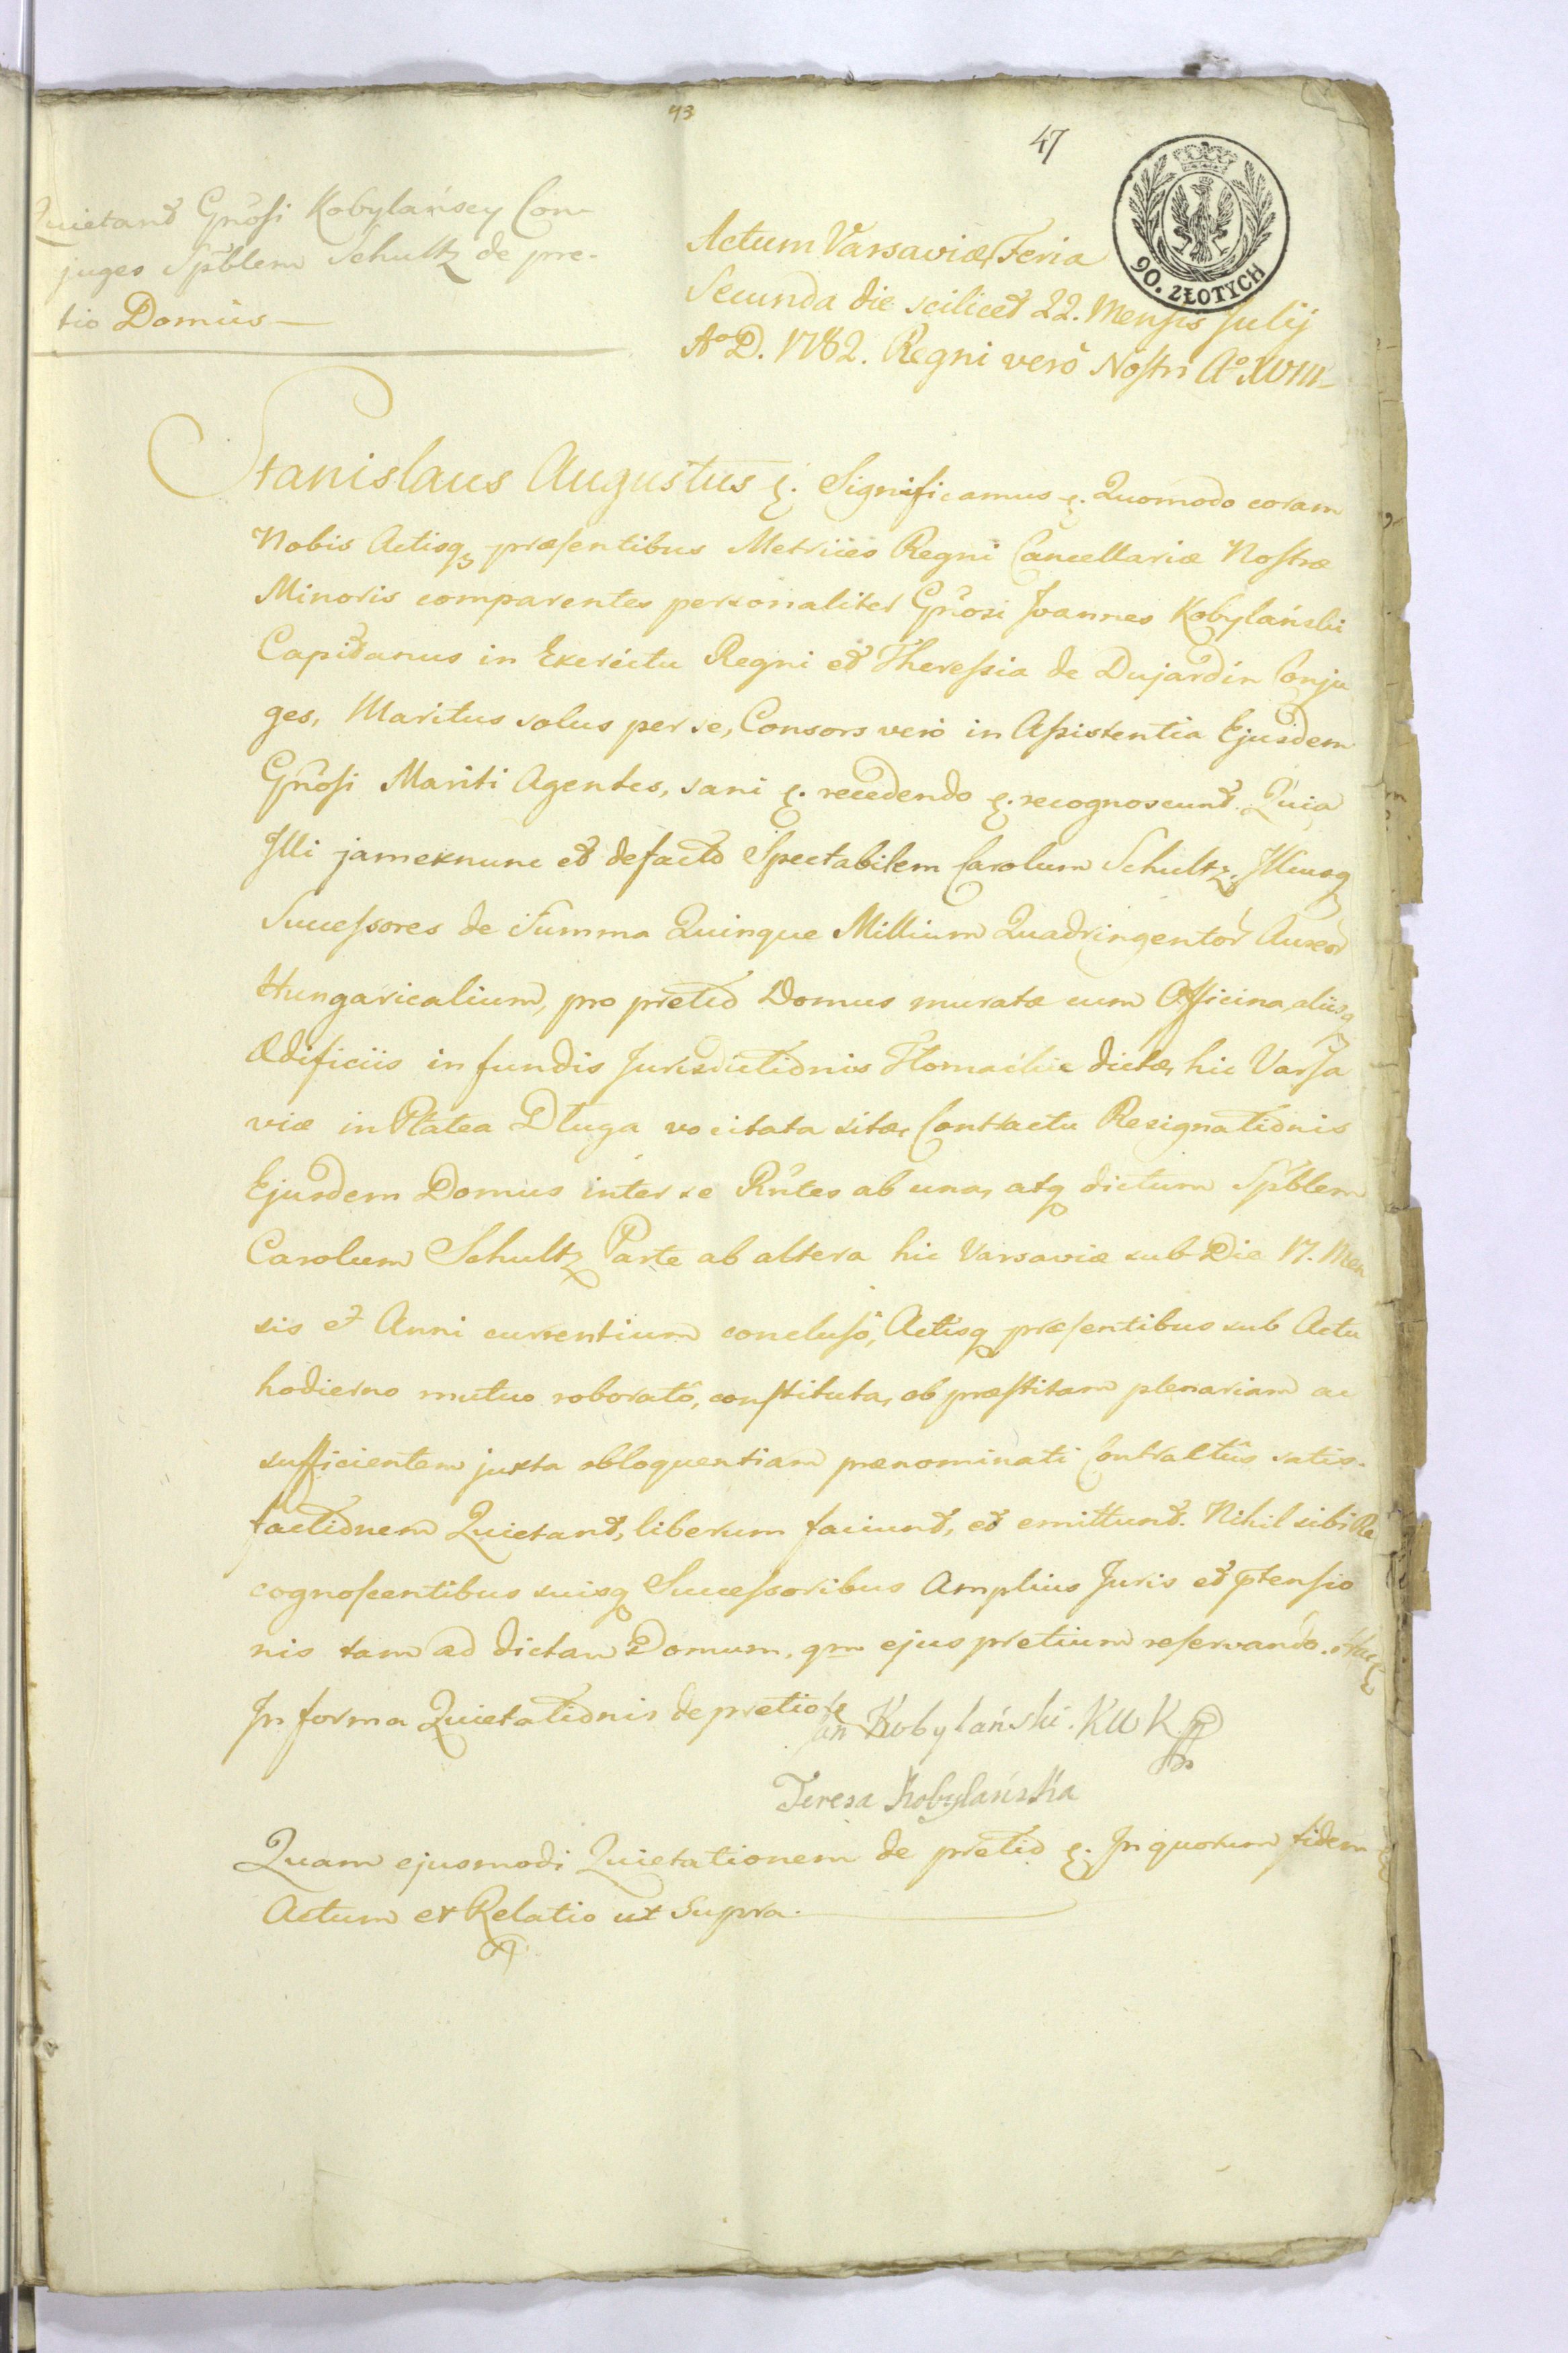 43
47
90. ZŁOTYCH
Quietant Gnosi Kobylańscy Con-
juges Spblem Schultz de pre-
tio Domûs
Actum Varsaviæ Feria
Secunda die scilicet 22. Mensis Julij
Aº D. 1782. Regni verò Nostri Aº XVIII
Stanislaus Augustus &. Significamus &. Quomodo coram
Nobis Actisq præsentibus Metrices Regni Cancellariæ Nostræ
Minoris comparentes personaliter Gnosi Joannes Kobylański
Capitanus in Exercitu Regni et Theressia de Dujardin Conju
ges, Maritus solus per se, Consors verò in Assistentia Ejusdem
Gnosi Mariti Agentes, sani &. recedendo &. recognoscunt. Quia
Illi jamexnunc et defacto Spectabilem Carolum Schultz, Illiusq
Successores de Summa Quinque Millium Quadringentor Aureor
Hungaricalium, pro pretio Domus muratæ cum Officina, aliisq
Ædificiis in fundis Jurisdictionis Tłomackie dictæ, hic Varsa
viæ in Platea Długa vocitata sitæ, Contractu Resignationis
Ejusdem Domus inter se Rntes ab una, atq dictum Spblem
Carolum Schultz Parte ab altera hic Varsaviæ sub Die 17. Men
sis et Anni currentium conclusô, Actisq præsentibus sub Actu
hodierno mutuo roboratô, constituta, ob præstitam plenariam ac
sufficientem juxta obloquentiam prænominati Contractûs satis-
factionem Quietant, liberum faciunt, et emittunt. Nihil sibi Re
cognoscentibus suisq Successoribus Amplius Juris et ptensio
nis tam ad dictam Domum, qm ejus pretium reservando.
In forma Quietationis de pretio &
Jan Kobylański. KWK mp
Teresa Kobylańska
Quam ejusmodi Quietationem de pretio &. In quorum fidem &
Actum et Relatio ut Supra.